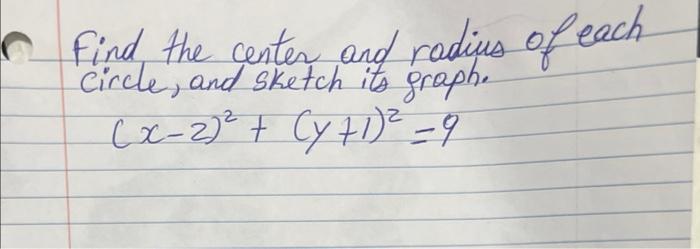 Find the center and radius of each
circle, and sketch its graph.
(x-2)² + (y+1)² = 9